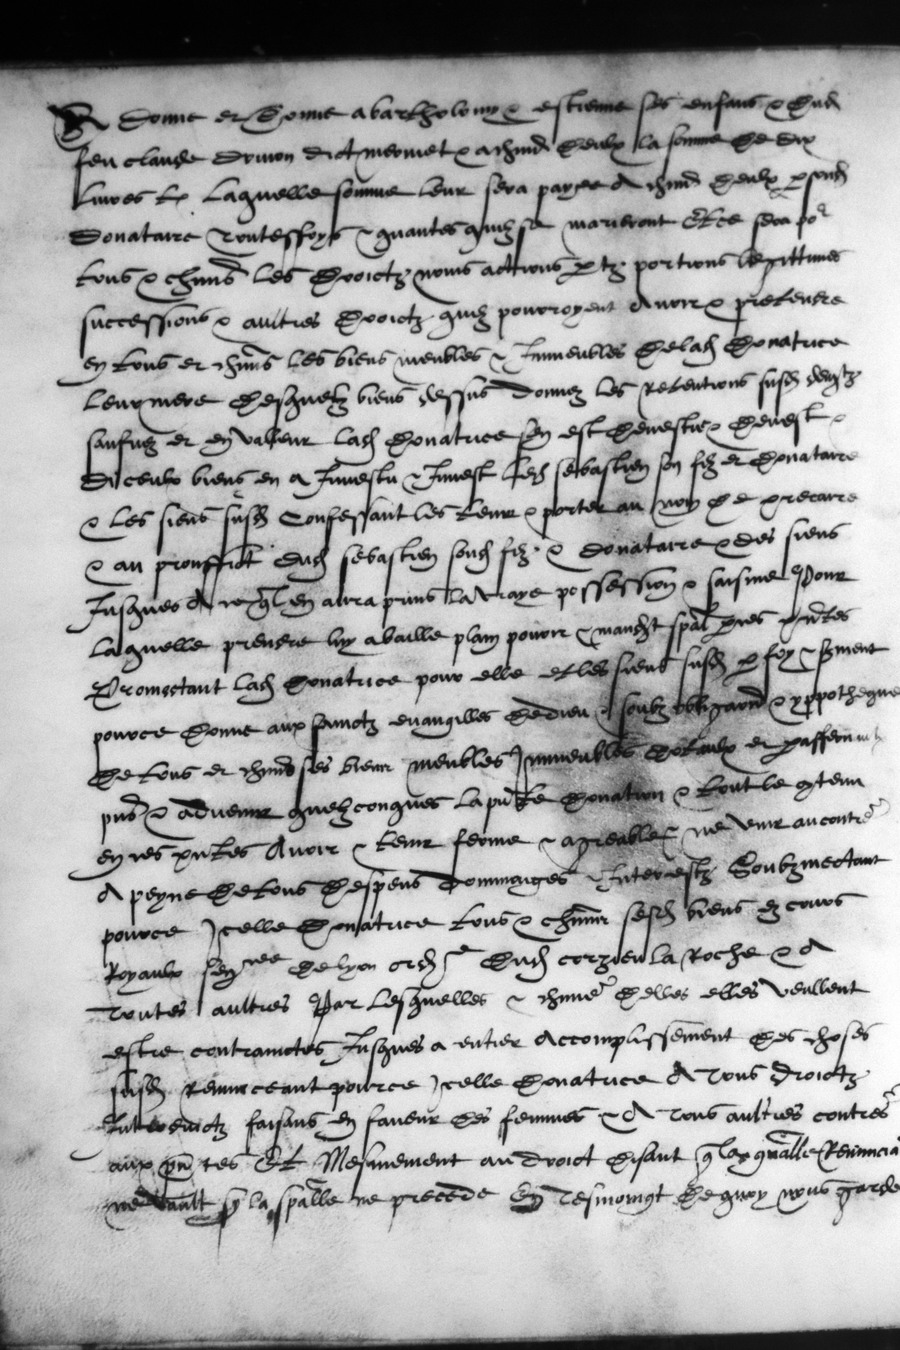 Donne et donne a bartholomy & estienne ses enfans & dud
feu claude drivon dict mermet & a chund deulx la somme de dix
livres tz laquelle somme leur sera payee a chund deulx
donataire touteffoys & quantes quilz se marieront Et ce sera por
tous & chuns les droictz noms actions ptz portions legittimes
successions & aultres droictz quilz pourroyent avoir & pretendre
en tous et chuns les biens meubles & Immeubles de lad donatrice
leur mere desquelz biens dessus donnez les retentions susd
saufuez et en valleur lad donatrice sen est devestie & devest &
diceulx biens en a Investu & Invest led sebastien son filz et donataire
& les siens susd Confessant les tenir & porter au nom de precaire
& au prouffict dud sebastien sond filz & donataire & des siens
Jusques A ce ql en aura prins la vraye possession & saisine Pour
laquelle prendre luy a baille plain pouvoir & mandt spal
Promectant lad donatrice pour elle et les siens susd p foy & sment
pource donne aux sainctz evangilles de dieu & soubz obligaon & yppotheque
de tous et chuns ses biens meubles Immeubles
pns & advenir quelzconques la pnte donation & tout le contenu
en ces pntes Avoir & tenir ferme & agreable ne venir au contre
A peyne de tous despens dommaiges & Interestz Soubzmectant
pource Icelle donatrice tous & chuns sesd biens Es cours
Royaulx de lyon dud la Roche & A
toutes aultres Par lesquelles & chune delles elles veullent
estre contrainctes Jusques a entier Accomplissement des choses
susd Renunceant pource Icelle donatrice A tous droictz
faisans en faveur des femmes & A tous aultres contres
aux pntes Et Mesmement au droict disant q la gnalle Renuncia
ne vault sy la spalle ne precede En tesmoingt de quoy nous